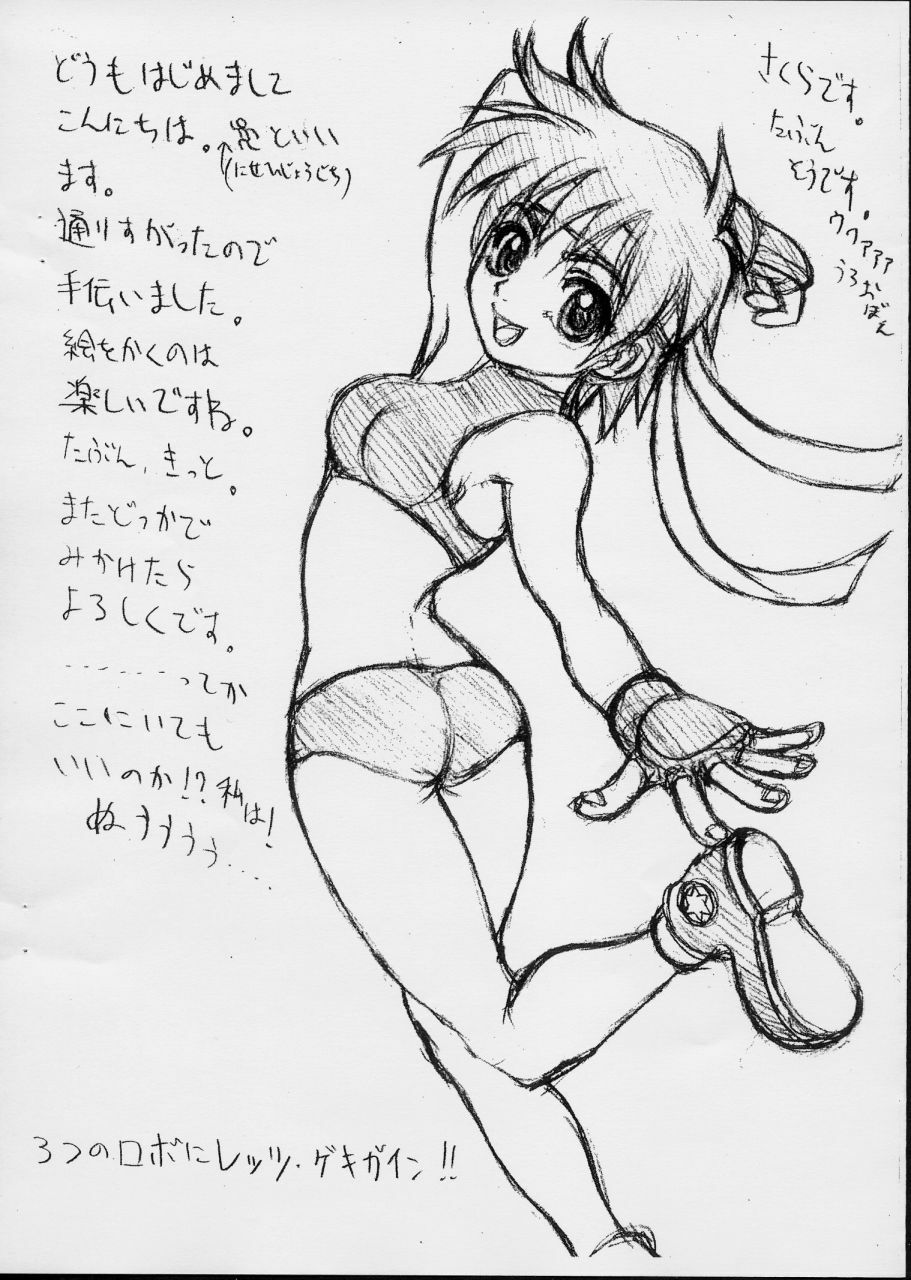 どうもはじめまして
こんにちは。といい
(にせいじょうじち)
ます。
通りすがったので
手伝いました。
絵をかくのは
楽しいですね。
たぶん、きっと。
またどっかで
みかけたら
よろしくです。
………ってか
ここにいても
いいのか!?私は!
ぬぅぅぅぅ…
さくらです。
たぶん
そうです。
ウワァァァ
うろおぼえ
3つのロボにレッツ・ゲキガイン!!